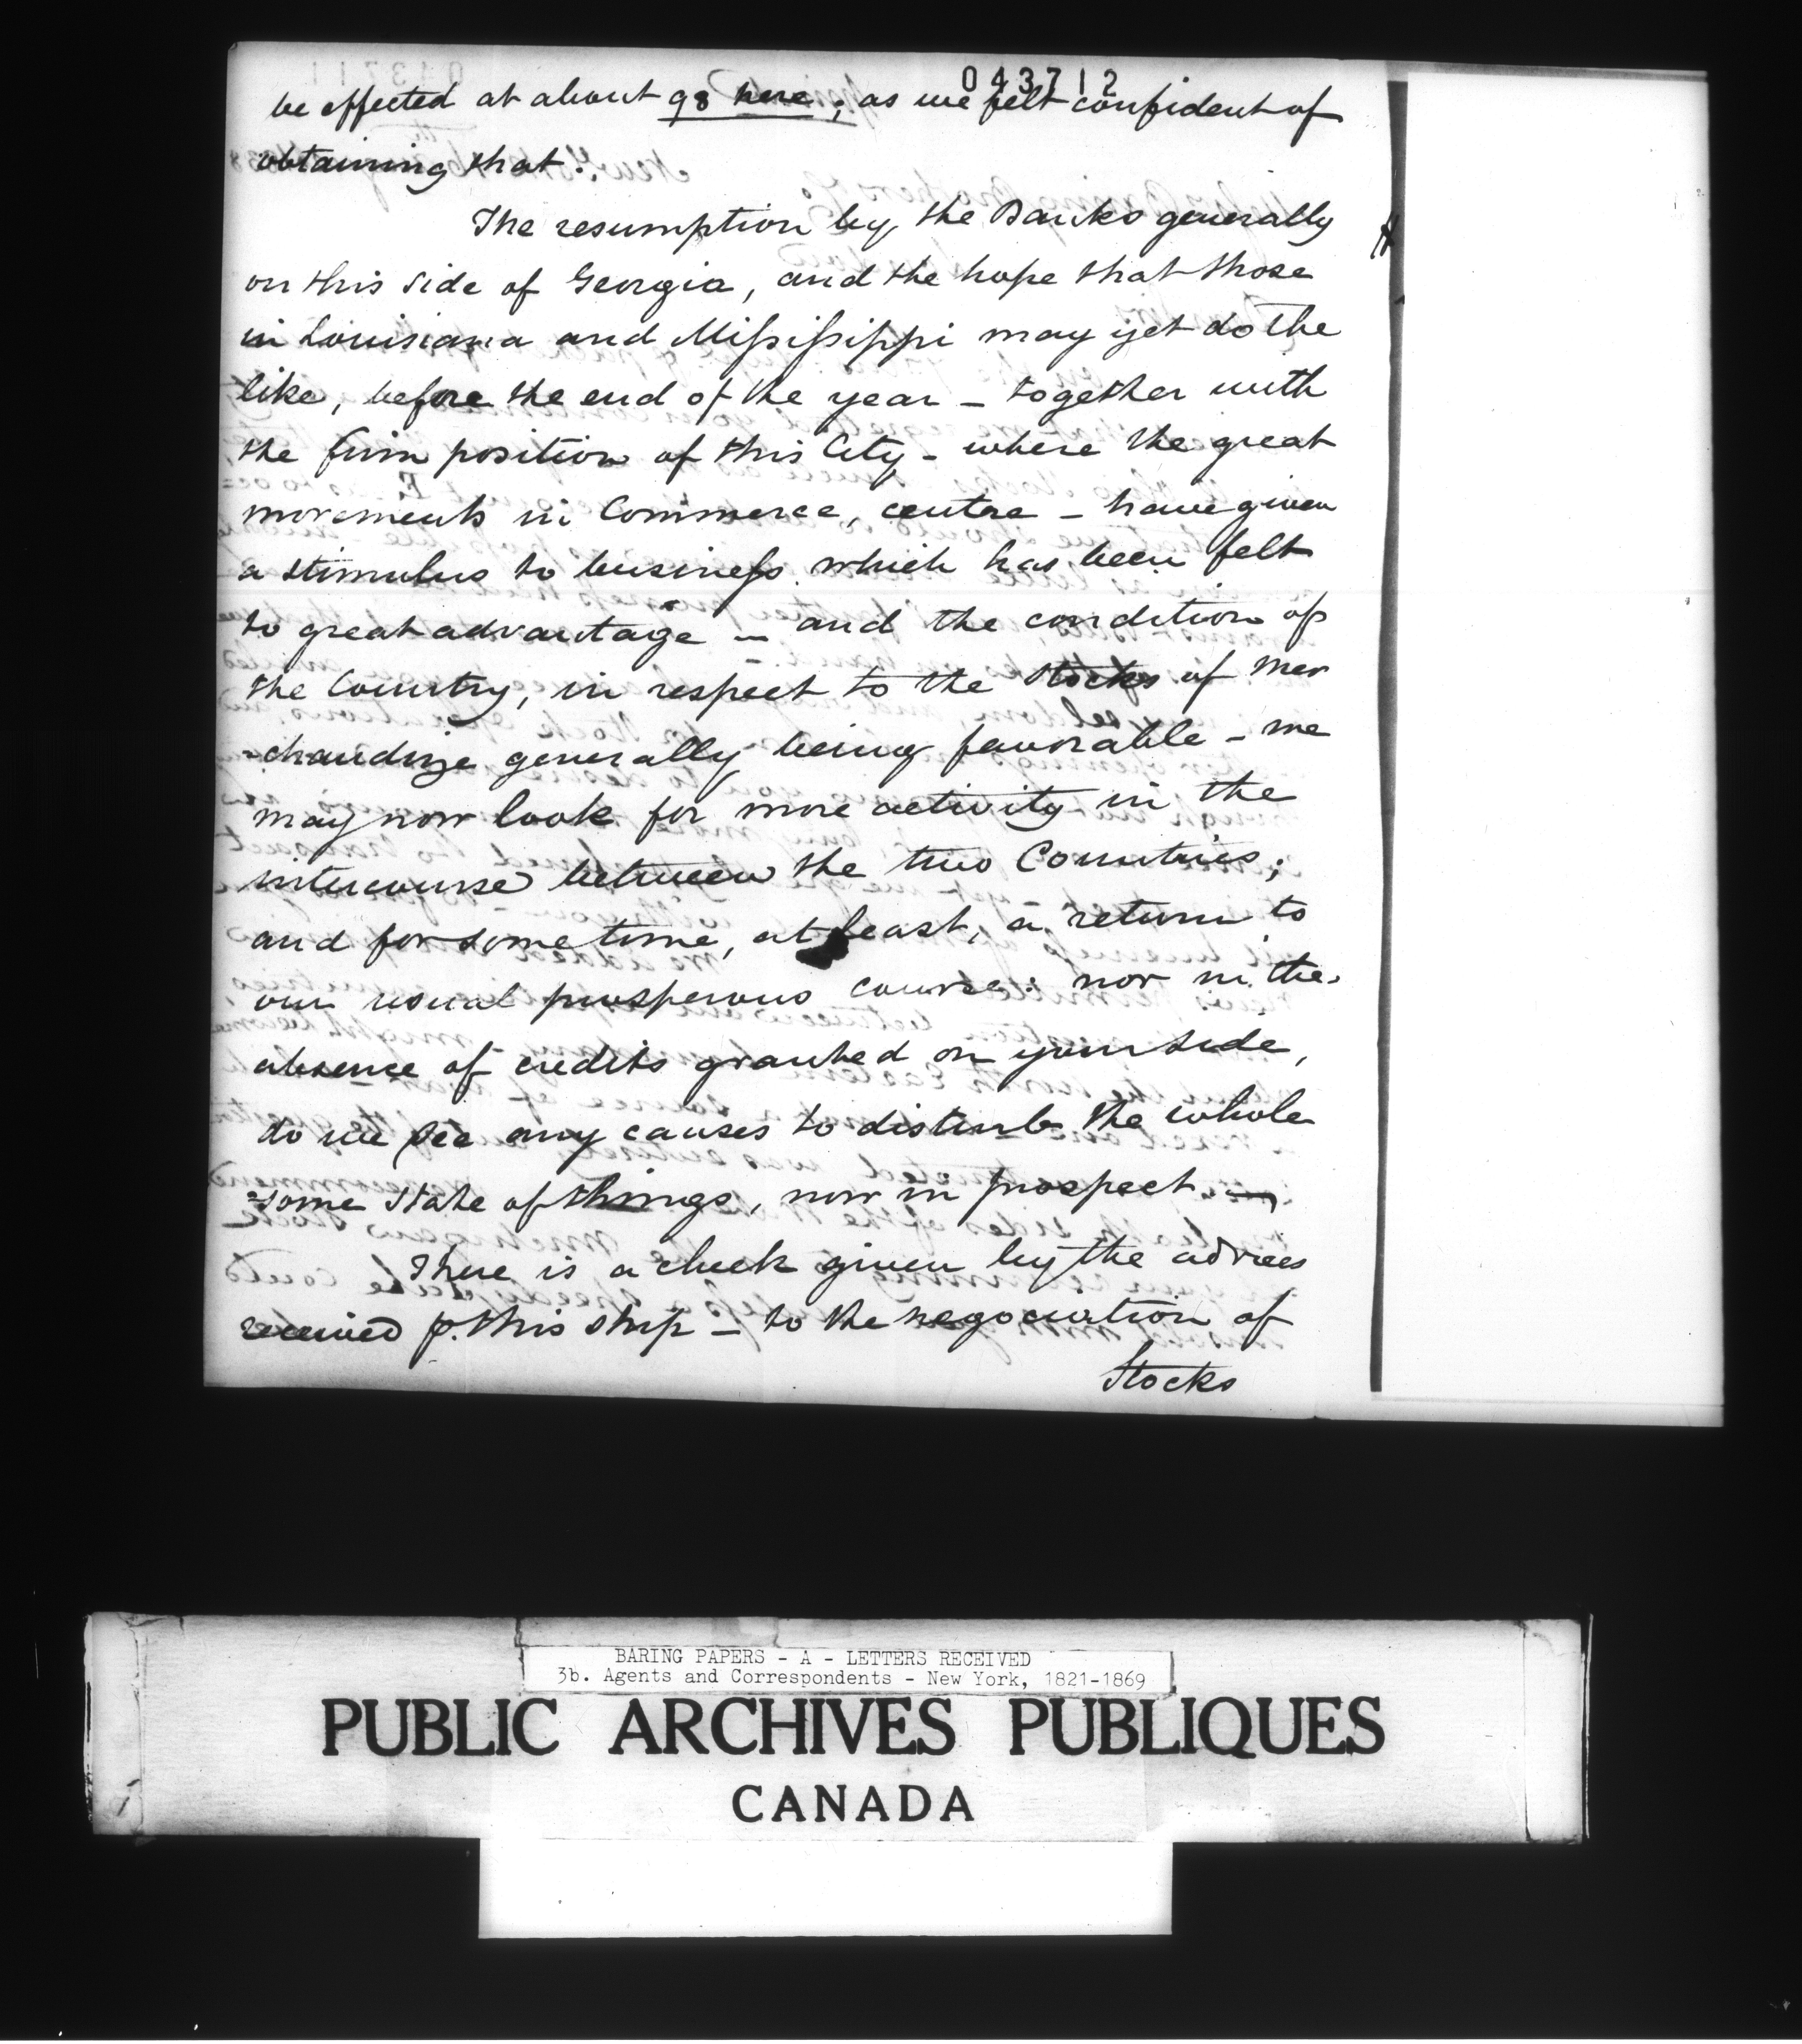 043712
be effected at about 98 here; as we felt confident of
obtaining that.
The resumption by the Banks generally
on this side of Georgia, and the hope that those
in Louisiana and Mississippi may yet do the
like, before the end of the year – together with
the firm position of this City – where the great
movements in Commerce, centre – have given
a stimulus to business which has been felt
to great advantage – and the condition of
the Country, in respect to the Stocks of Mer
=chandize generally being favorable – we
may now look for more activity in the
intercourse between the two Countries;
and for some time, at least, a return to
our usual prosperous course: nor in the
absence of credits granted on your side,
do we see any causes to disturb the whole
=some state of things, now in prospect. –
There is a check given by the advices
received p. this ship – to the negociation of
Stocks
BARING PAPERS - A - LETTERS RECEIVED
3b. Agents and Correspondents - New York, 1821-1869
PUBLIC ARCHIVES PUBLIQUES
CANADA